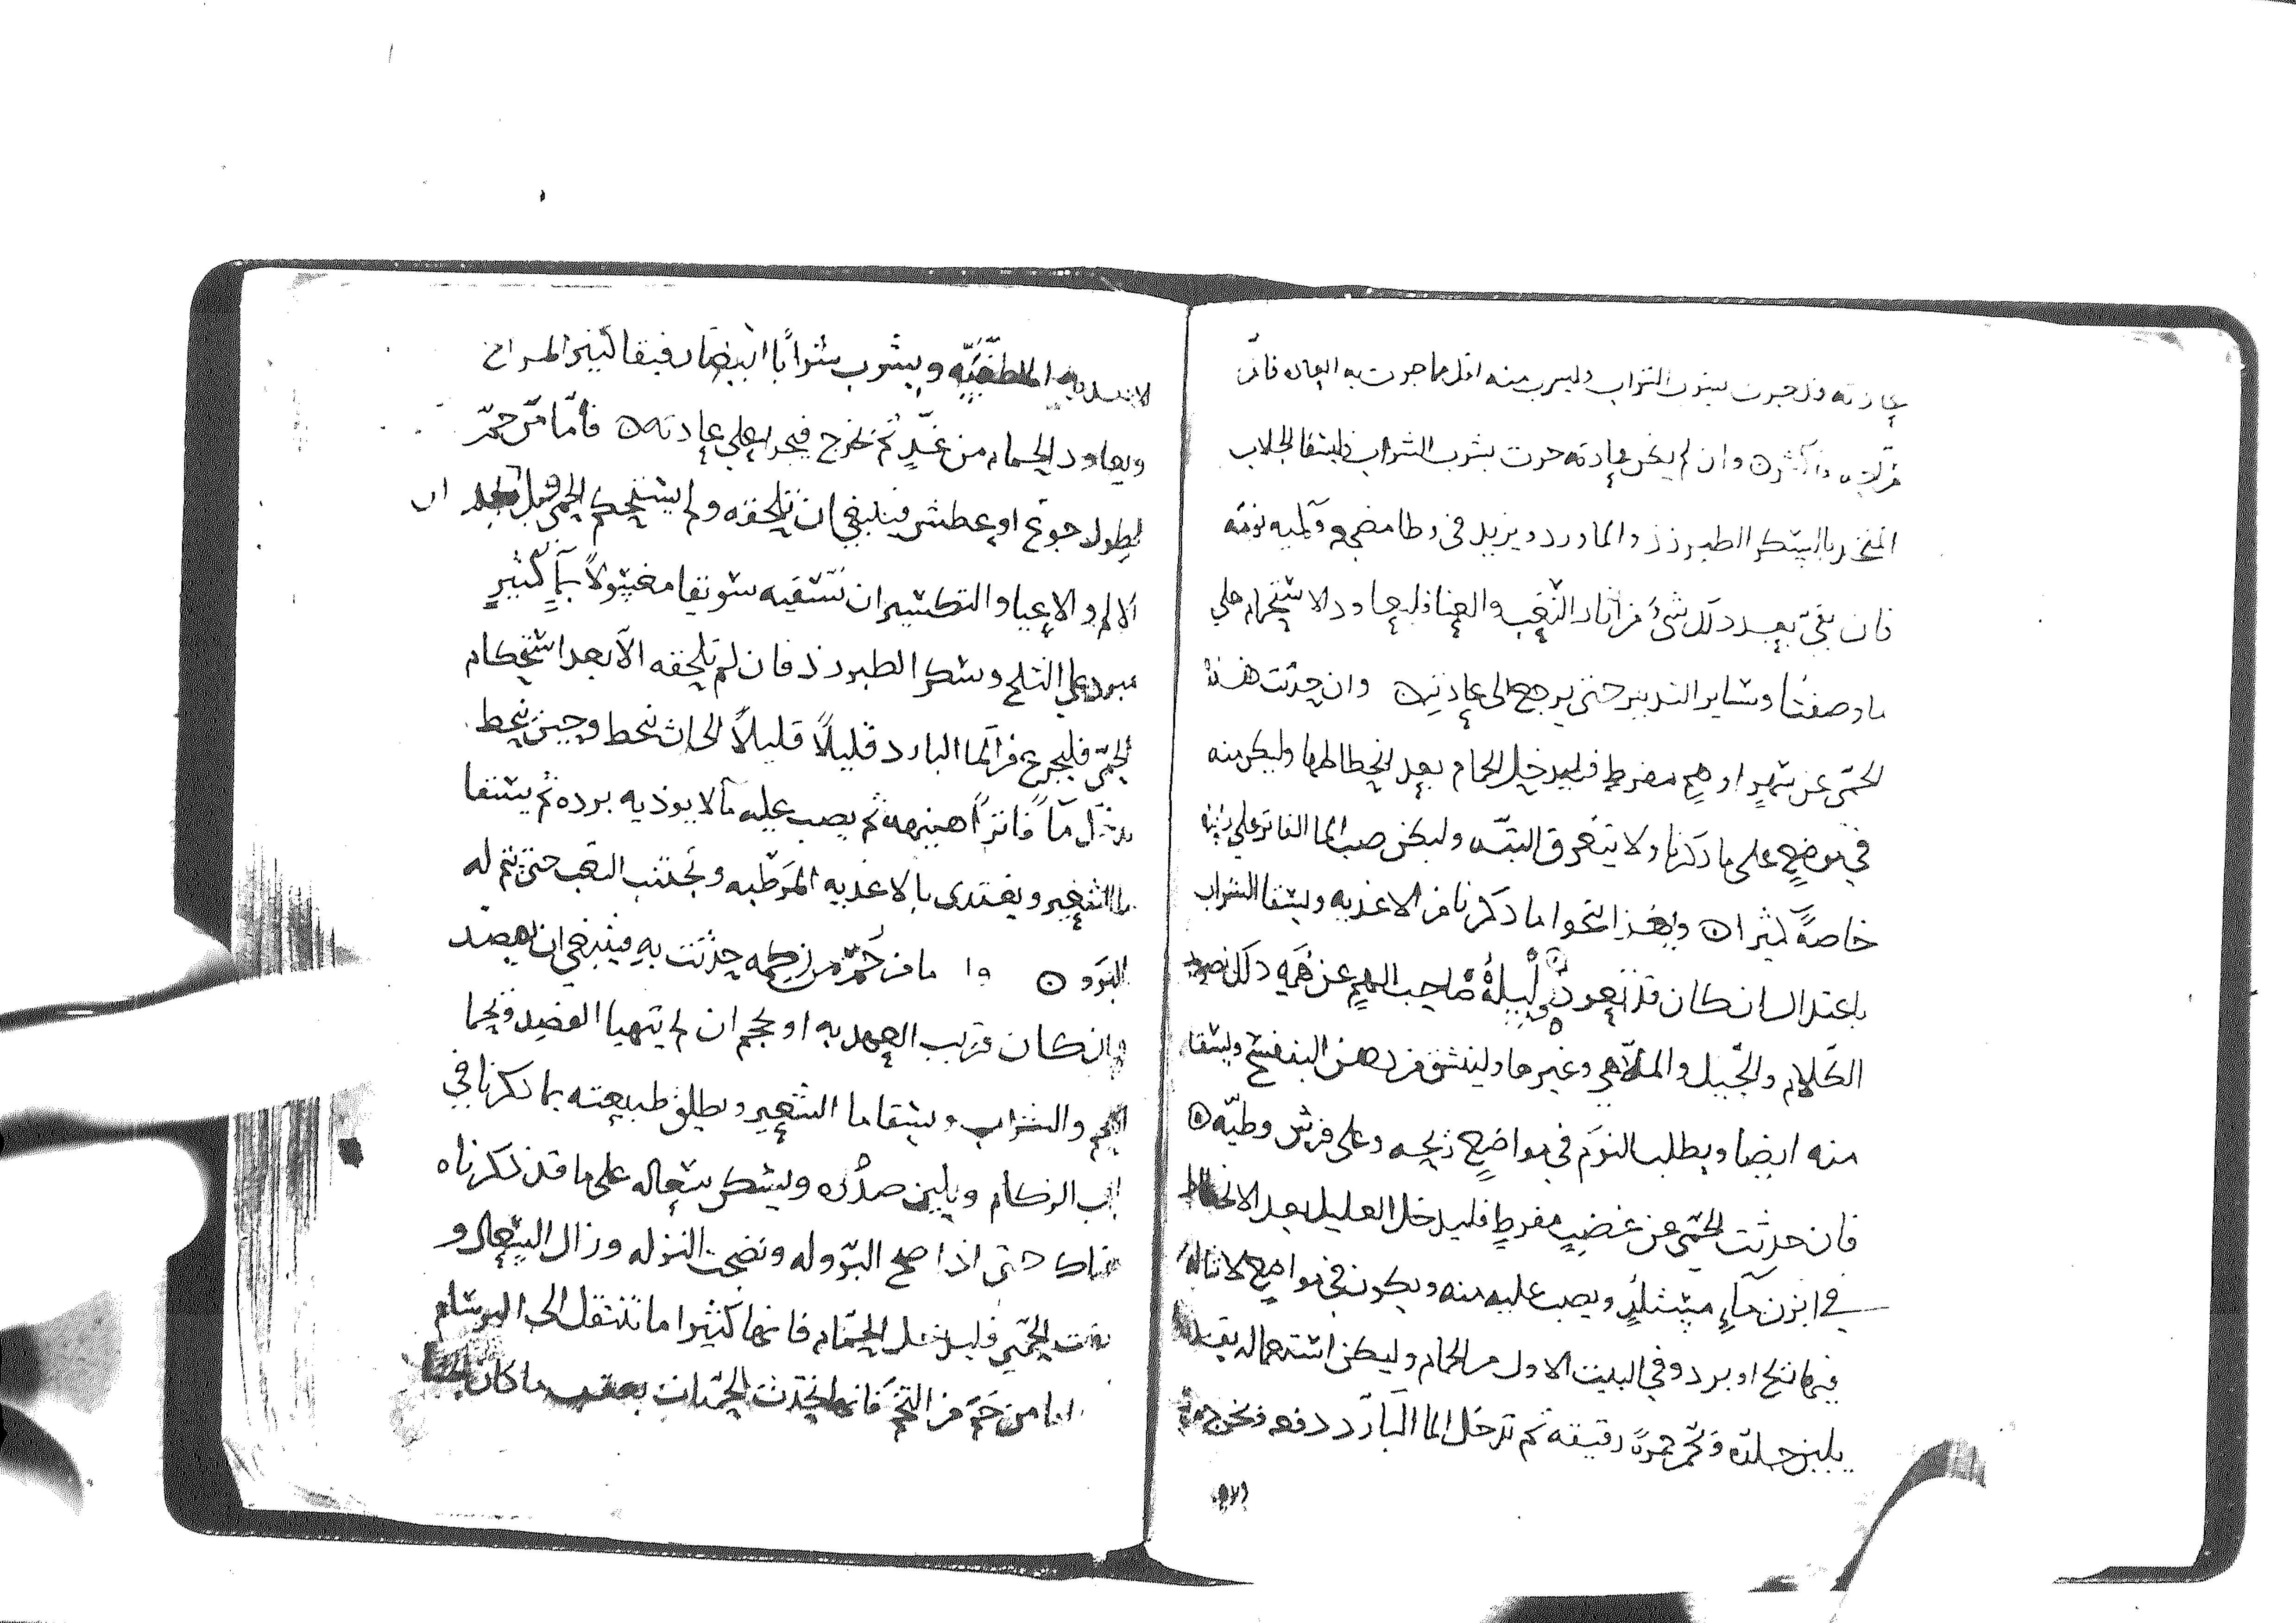 عادته قد جرت بشرب الشراب وليشرب منه اقل مما جرت به العاده فان
وان لم يكن عادته جرت بشرب الشراب فليسقا الجلاب
المتخذ بالسكر الطبرزذ والماورد ويزيد في وطا مضجعه وكميه نومه
فان بقي بعد ذلك شيء من اثار التعب والعنا فليعاود الاستحمام على
ما وصفنا وساير التدبير حتى يرجع الى عادته ٥ وان حدثت هذه
الحمى عن سهرٍ او همٍ مفرط فليدخل الحمام بعد انحطاطها وليكن منه
في موضعٍ على ما ذكرنا ولا يتعرق البته وليكن صب الما الفاتر على راسه
خاصةً كثيرا ٥ ويغذا بنحو ما ذكرنا من الاغذيه ويسقا الشراب
باعتدال ان كان قد تعود وليله صاحب الهم عن همه ذلك بضروب
الكلام والحيل والملاهي وغيرها ولينشق من دهن البنفسج ويسقا
منه ايضا ويطلب النوم في مواضع ريحه وعلى فرش وطيه ٥
فان حدثت الحمى عن غضبٍ مفرطٍ فليدخل العليل بعد الانحطاط
في ابزن مآءٍ ويصب عليه منه ويكون في مواضع لا تناله
فيها ثلج او برد وفي البيت الاول من الحمام وليكن استعماله بقدر
يلين جلده ويحمر حمرةً رقيقه ثم يدخل الما البارد دفعه ويخرج منه
الاغذيه المطفئه ويشرب شراباً ابيضا رقيقا كثير المزاج
ويعاود الحمام من غدٍ ثم يخرج فيجرا على عادته ٥ فأمّا من حمّ
لطول جوع او عطش فينبغي ان تلحقه ولم يستحكم الحمى قبل ان
الالم والاعيا والتكسير ان تسقيه سويقا مغسولاً بمآءٍ كثيرٍ
مبرد على الثلج وسكر الطبرزذ فان لم تلحقه الا بعد استحكام
الحمى فليجرع من الما البارد قليلاً قليلاً الى ان تنحط وحين تنحط
يدخل مآءً فاترًا هنيهه ثم يصب عليه ما لا يوذيه برده ثم يسقا
ما الشعير ويغتدى بالاغذيه المرطبه ويجتنب التعب حتى يتم له
البرو ٥ واما من حمّ من زكمه حدثت به فينبغي ان يفصد
وان كان قريب العهد به او يحجم ان لم يتهيا الفصد ويحما
اللحم والشراب ويسقا ما الشعير ويطلق طبيعته بما ذكرنا في
باب الزكام ويلين صدره ويسكن سعاله على ما قد ذكرناه
هناك حتى اذا صح البرو له ونضجت النزله وزال السعال و
بقيت الحمى فليدخل الحمام فانها كثيرا ما تنتقل الى البرسام
اما من حم من التخم فانما تحدث الحميات بعقب ما كان